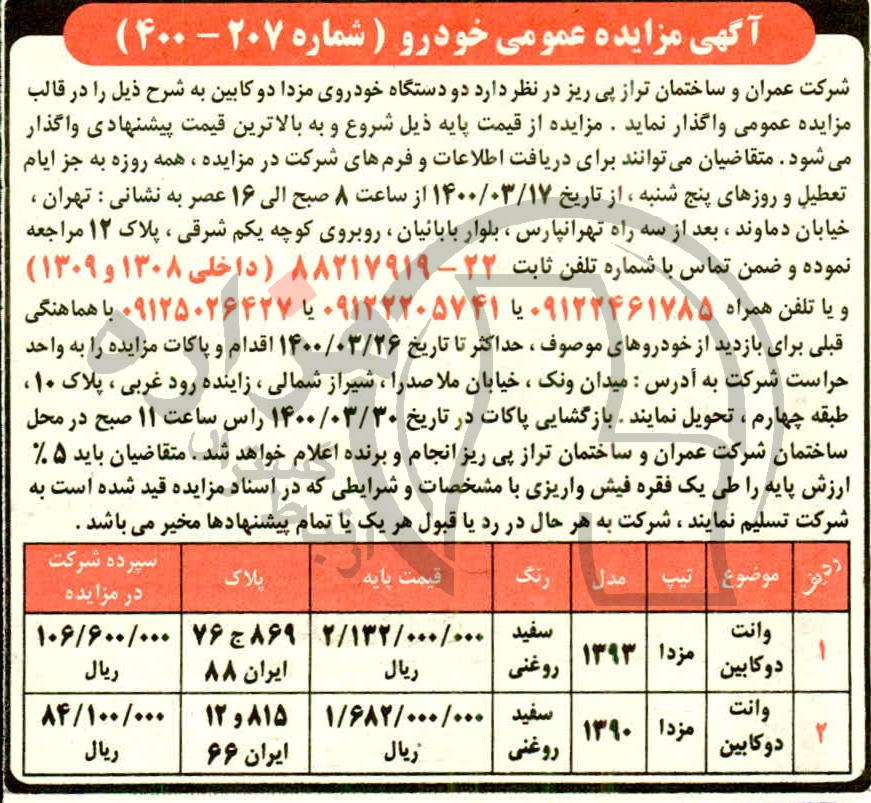 آگهی مزایده عمومی خودرو ( شماره ۲۰۷ – ۴۰۰ )
شرکت عمران و ساختمان تراز پی ریز در نظر دارد دو دستگاه خودروی مزدا دو کابین به شرح ذیل را در قالب
مزایده عمومی واگذار نماید . مزایده از قیمت پایه ذیل شروع و به بالاترین قیمت پیشنهادی واگذار
می شود . متقاضیان می توانند برای دریافت اطلاعات و فرم های شرکت در مزایده ، همه روزه به جز ایام
تعطیل و روزهای پنج شنبه ، از تاریخ ۱۴۰۰/۰۳/۱۷ از ساعت ۸ صبح الی ۱۶ عصر به نشانی : تهران ،
خیابان دماوند ، بعد از سه راه تهرانپارس ، بلوار بابائیان ، روبروی کوچه یکم شرقی ، پلاک ۱۲ مراجعه
نموده و ضمن تماس با شماره تلفن ثابت ۲۲ – ۸۸۲۱۷۹۱۹ ( داخلی ۱۳۰۸ و ۱۳۰۹ )
و یا تلفن همراه ۰۹۱۲۲۴۶۱۷۸۵ یا ۰۹۱۲۲۲۰۵۷۴۱ یا ۰۹۱۲۵۰۲۶۴۲۷ با هماهنگی
قبلی برای بازدید از خودروهای موصوف ، حداکثر تا تاریخ ۱۴۰۰/۰۳/۲۶ اقدام و پاکات مزایده را به واحد
حراست شرکت به آدرس : میدان ونک ، خیابان ملاصدرا ، شیراز شمالی ، زاینده رود غربی ، پلاک ۱۰ ،
طبقه چهارم ، تحویل نمایند . بازگشایی پاکات در تاریخ ۱۴۰۰/۰۳/۳۰ راس ساعت ۱۱ صبح در محل
ساختمان شرکت عمران و ساختمان تراز پی ریز انجام و برنده اعلام خواهد شد . متقاضیان باید ۵ %
ارزش پایه را طی یک فقره فیش واریزی با مشخصات و شرایطی که در اسناد مزایده قید شده است به
شرکت تسلیم نمایند ، شرکت به هر حال در رد یا قبول هر یک یا تمام پیشنهادها مخیر می باشد .
ردیف موضوع تیپ مدل رنگ قیمت پایه پلاک سپرده شرکت در مزایده
۱ وانت دوکابین مزدا ۱۳۹۳ سفید روغنی ۲/۱۳۲/۰۰۰/۰۰۰ ریال ۸۶۹ ج ۷۶ ایران ۸۸ ۱۰۶/۶۰۰/۰۰۰ ریال
۲ وانت دوکابین مزدا ۱۳۹۰ سفید روغنی ۱/۶۸۲/۰۰۰/۰۰۰ ریال ۸۱۵ و ۱۲ ایران ۶۶ ۸۴/۱۰۰/۰۰۰ ریال